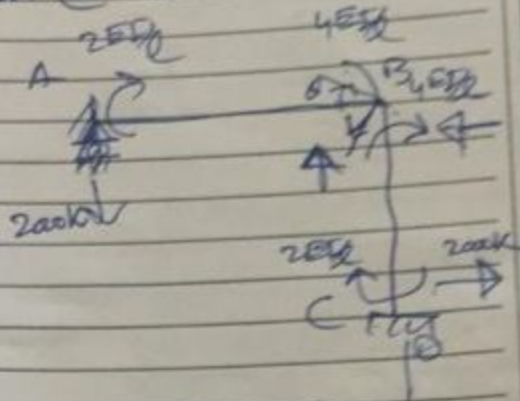 2EI/L
4EI/L
A
B 4EI/L
200kN
2EI/L
200k
C